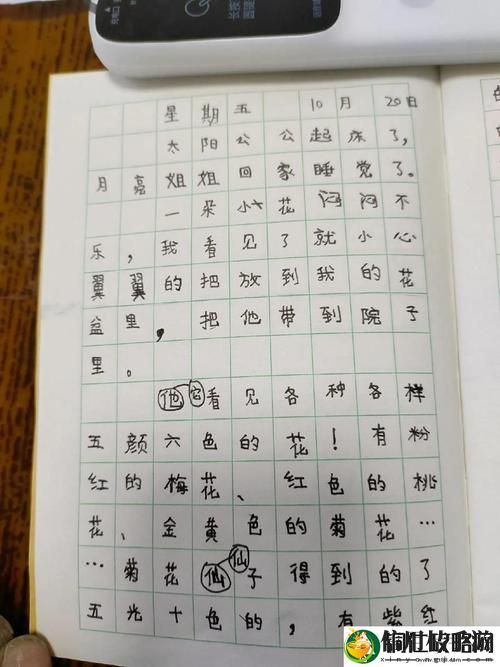 星期五 10月20日
太阳公公起床了,
月亮姐姐回家睡觉了。
一朵小花闷闷不
乐,我看见了就小心
翼翼的把放到我的花
盆里,把他带到院子
里。
他它看见各种各样
五颜六色的花!有粉
红的梅花、红色的桃
花、金黄色的菊花…
…菊花仙仙子得到的了
五光十色的,有紫红
铜灶攻略网